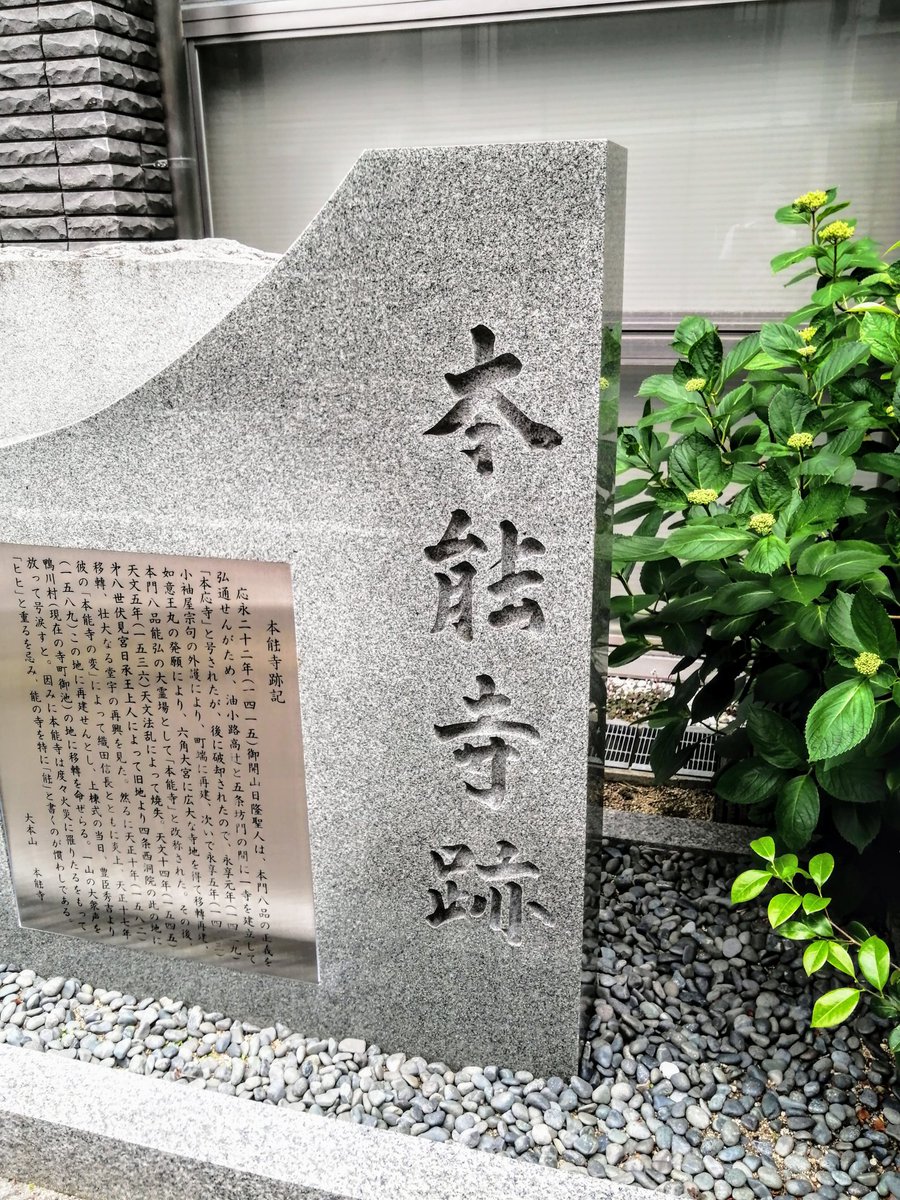 本能寺跡
本能寺跡記
応永二十二年(一四一五)御開山日隆聖人は、本門八品の正義を
弘通せんがため、油小路高辻と五条坊門の間に一寺を建立して
「本応寺」と号されたが、後に破却されたので、永享元年(一四二九)
小袖屋宗句の外護により、町端に再建、次いで永享五年(一四三三)
如意王丸の発願により、六角大宮に広大な寺地を得て移転再建
本門八品能弘の大霊場として「本能寺」と改称された。その後、
天文五年(一五三六)天文法乱によって焼失、天文十四年(一五四五)
第八世伏見宮日承王上人によって旧地より四条西洞院の此の地に
移転、壮大なる堂宇の再興を見た。然るに天正十年(一五八二)
彼の「本能寺の変」によって織田信長とともに炎上、天正十七年
(一五八九)この地に再建せんとし、上棟式の当日、豊臣秀吉より
鴨川村(現在の寺町御池)の地に移転を命ぜらる。一山の大衆声を
放って号涙すと。因みに本能寺は度々火災に罹りたるをもって
「ヒヒ」と重るを忌み、能の寺を特に「䏻」と書くのが慣わしである。
大本山 本能寺